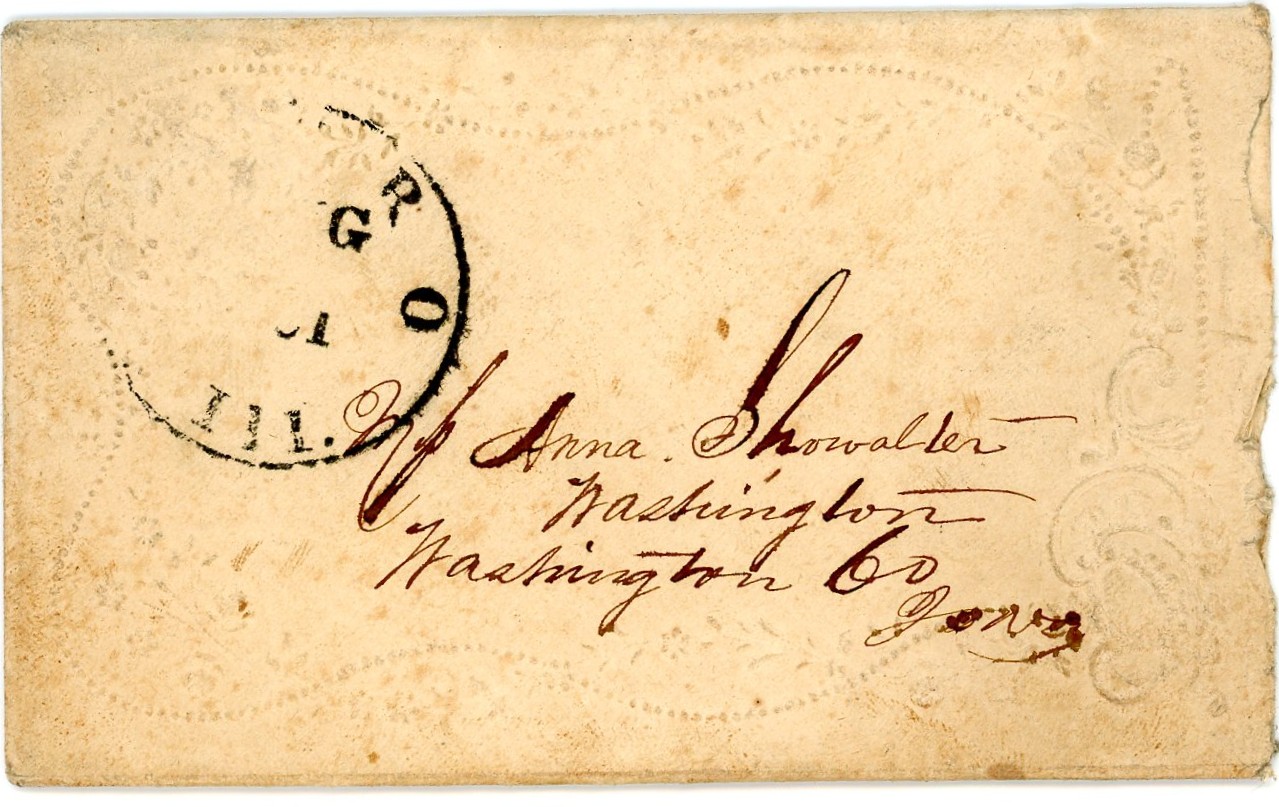 R
G
O
1
ILL.
Miss Anna Showalter
Washington
Washington Co
Iowa